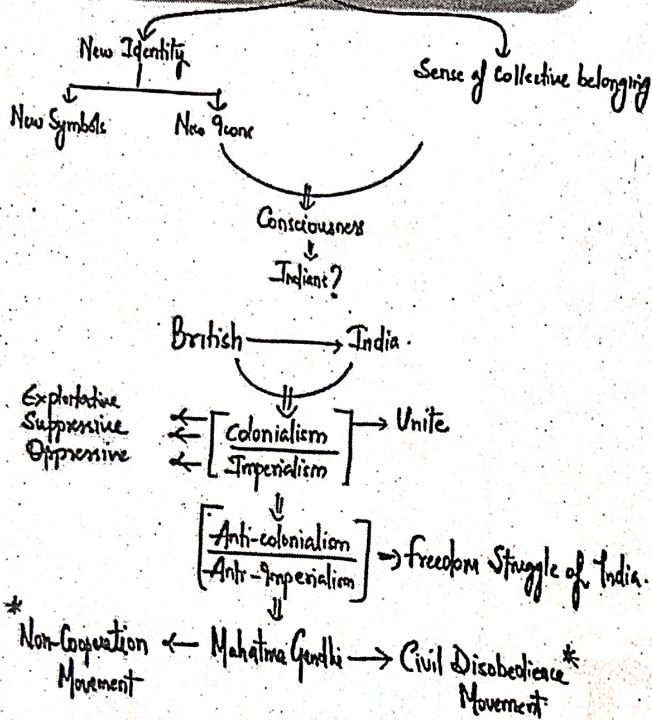 New Identity
Sense of Collective belonging
New Symbols New Icons
Consciousness
Indians?
British India.
Exploitative
Suppressive
Oppressive
Colonialism
Imperialism
Unite
Anti-colonialism
Anti-Imperialism
Freedom Struggle of India.
*Non-Cooperation Mahatma Gandhi Civil Disobedience*
Movement Movement